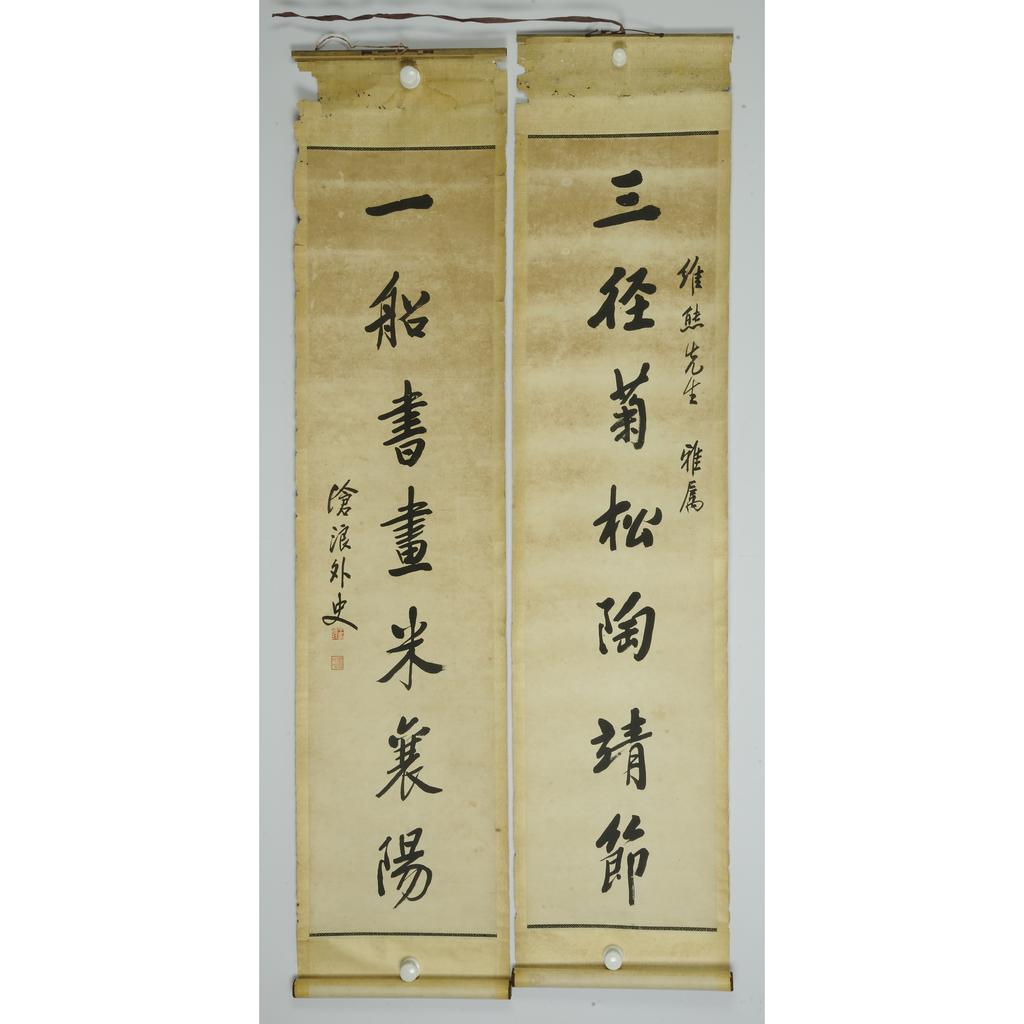 維熊先生 雅属
三径菊松陶靖節
一船書畫米襄陽
滄浪外史